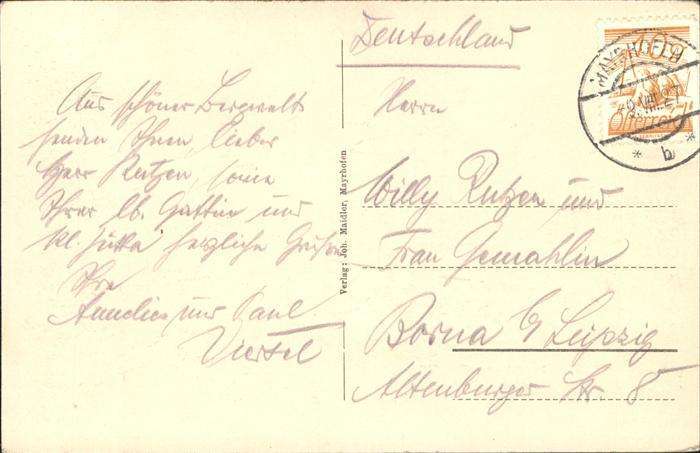 Deutschland
Aus schöner Bergwelt
senden Ihnen, lieber
Herr Rutzen, sowie
Ihrer lb. Gattin und
kl. herzliche Grüße
Ihre
Annelies und Paul
Viertel
Verlag: Joh. Maidler, Mayrhofen
Herrn
Willy Rutzen und
Frau Gemahlin
Borna b/ Leipzig
Altenburger Str 8
MAYRHOFEN
Österreich
* b *